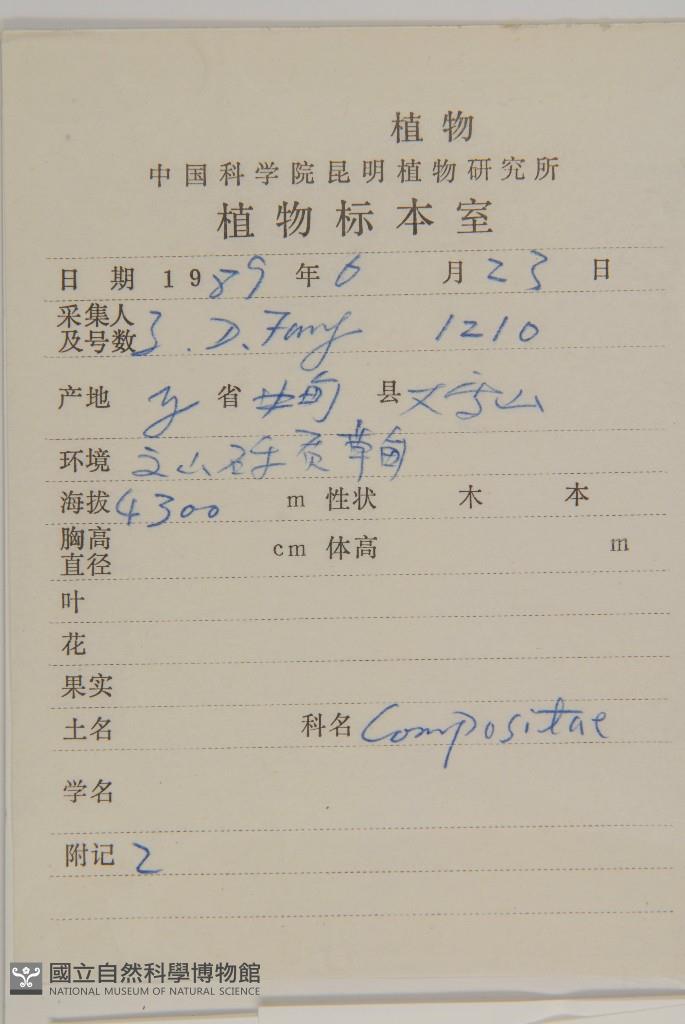 植物
中国科学院昆明植物研究所
植物标本室
日 期 1989 年 6 月 23 日
采集人
及号数 D. Fang 1210
产地 省 中甸 县 雪山
环境 山 砾质草甸
海拔 4300 m 性状 木 本
胸高
直径 cm 体高 m
叶
花
果实
土名 科名 Compositae
学名
附记 2
國立自然科學博物館
NATIONAL MUSEUM OF NATURAL SCIENCE